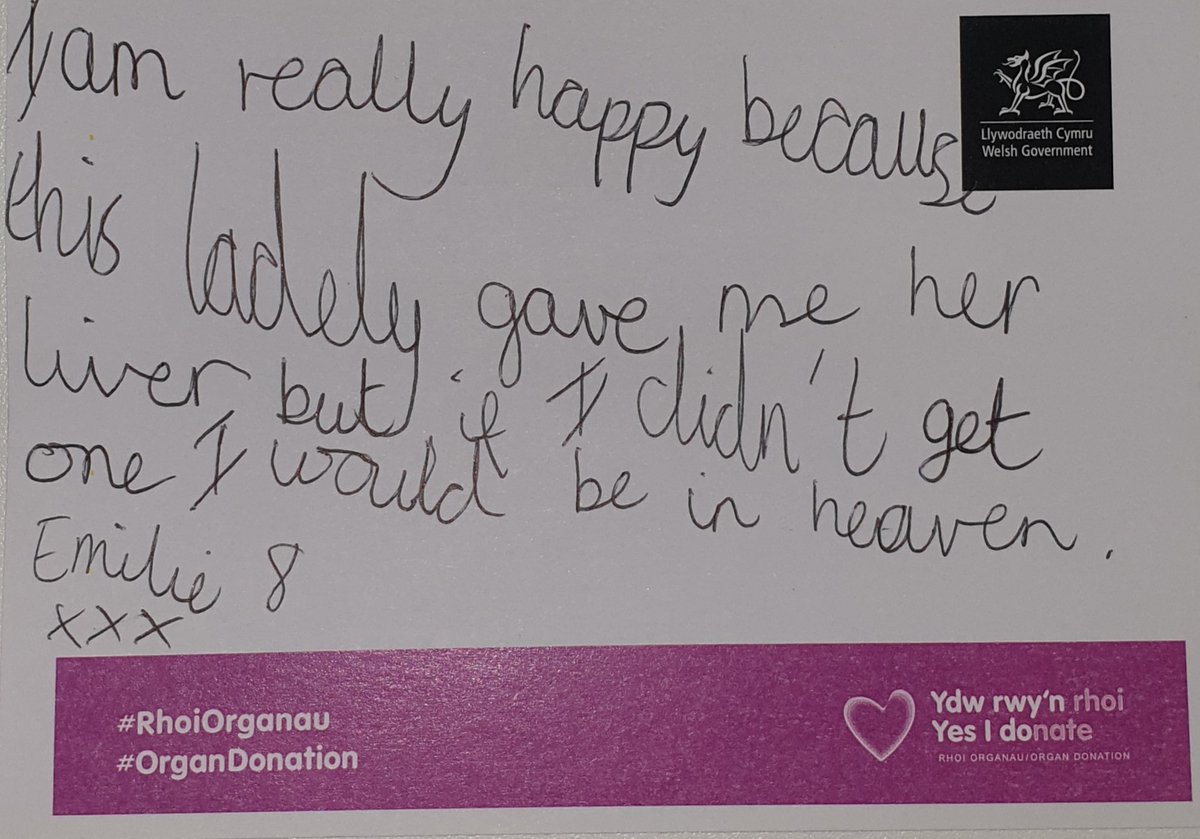 I am really happy because
this ladely gave me her
liver but if I didn't get
one I would be in heaven.
Emilie 8
xxx
Llywodraeth Cymru
Welsh Government
#RhoiOrganau
#OrganDonation
Ydw rwy'n rhoi
Yes I donate
RHOI ORGANAU/ORGAN DONATION